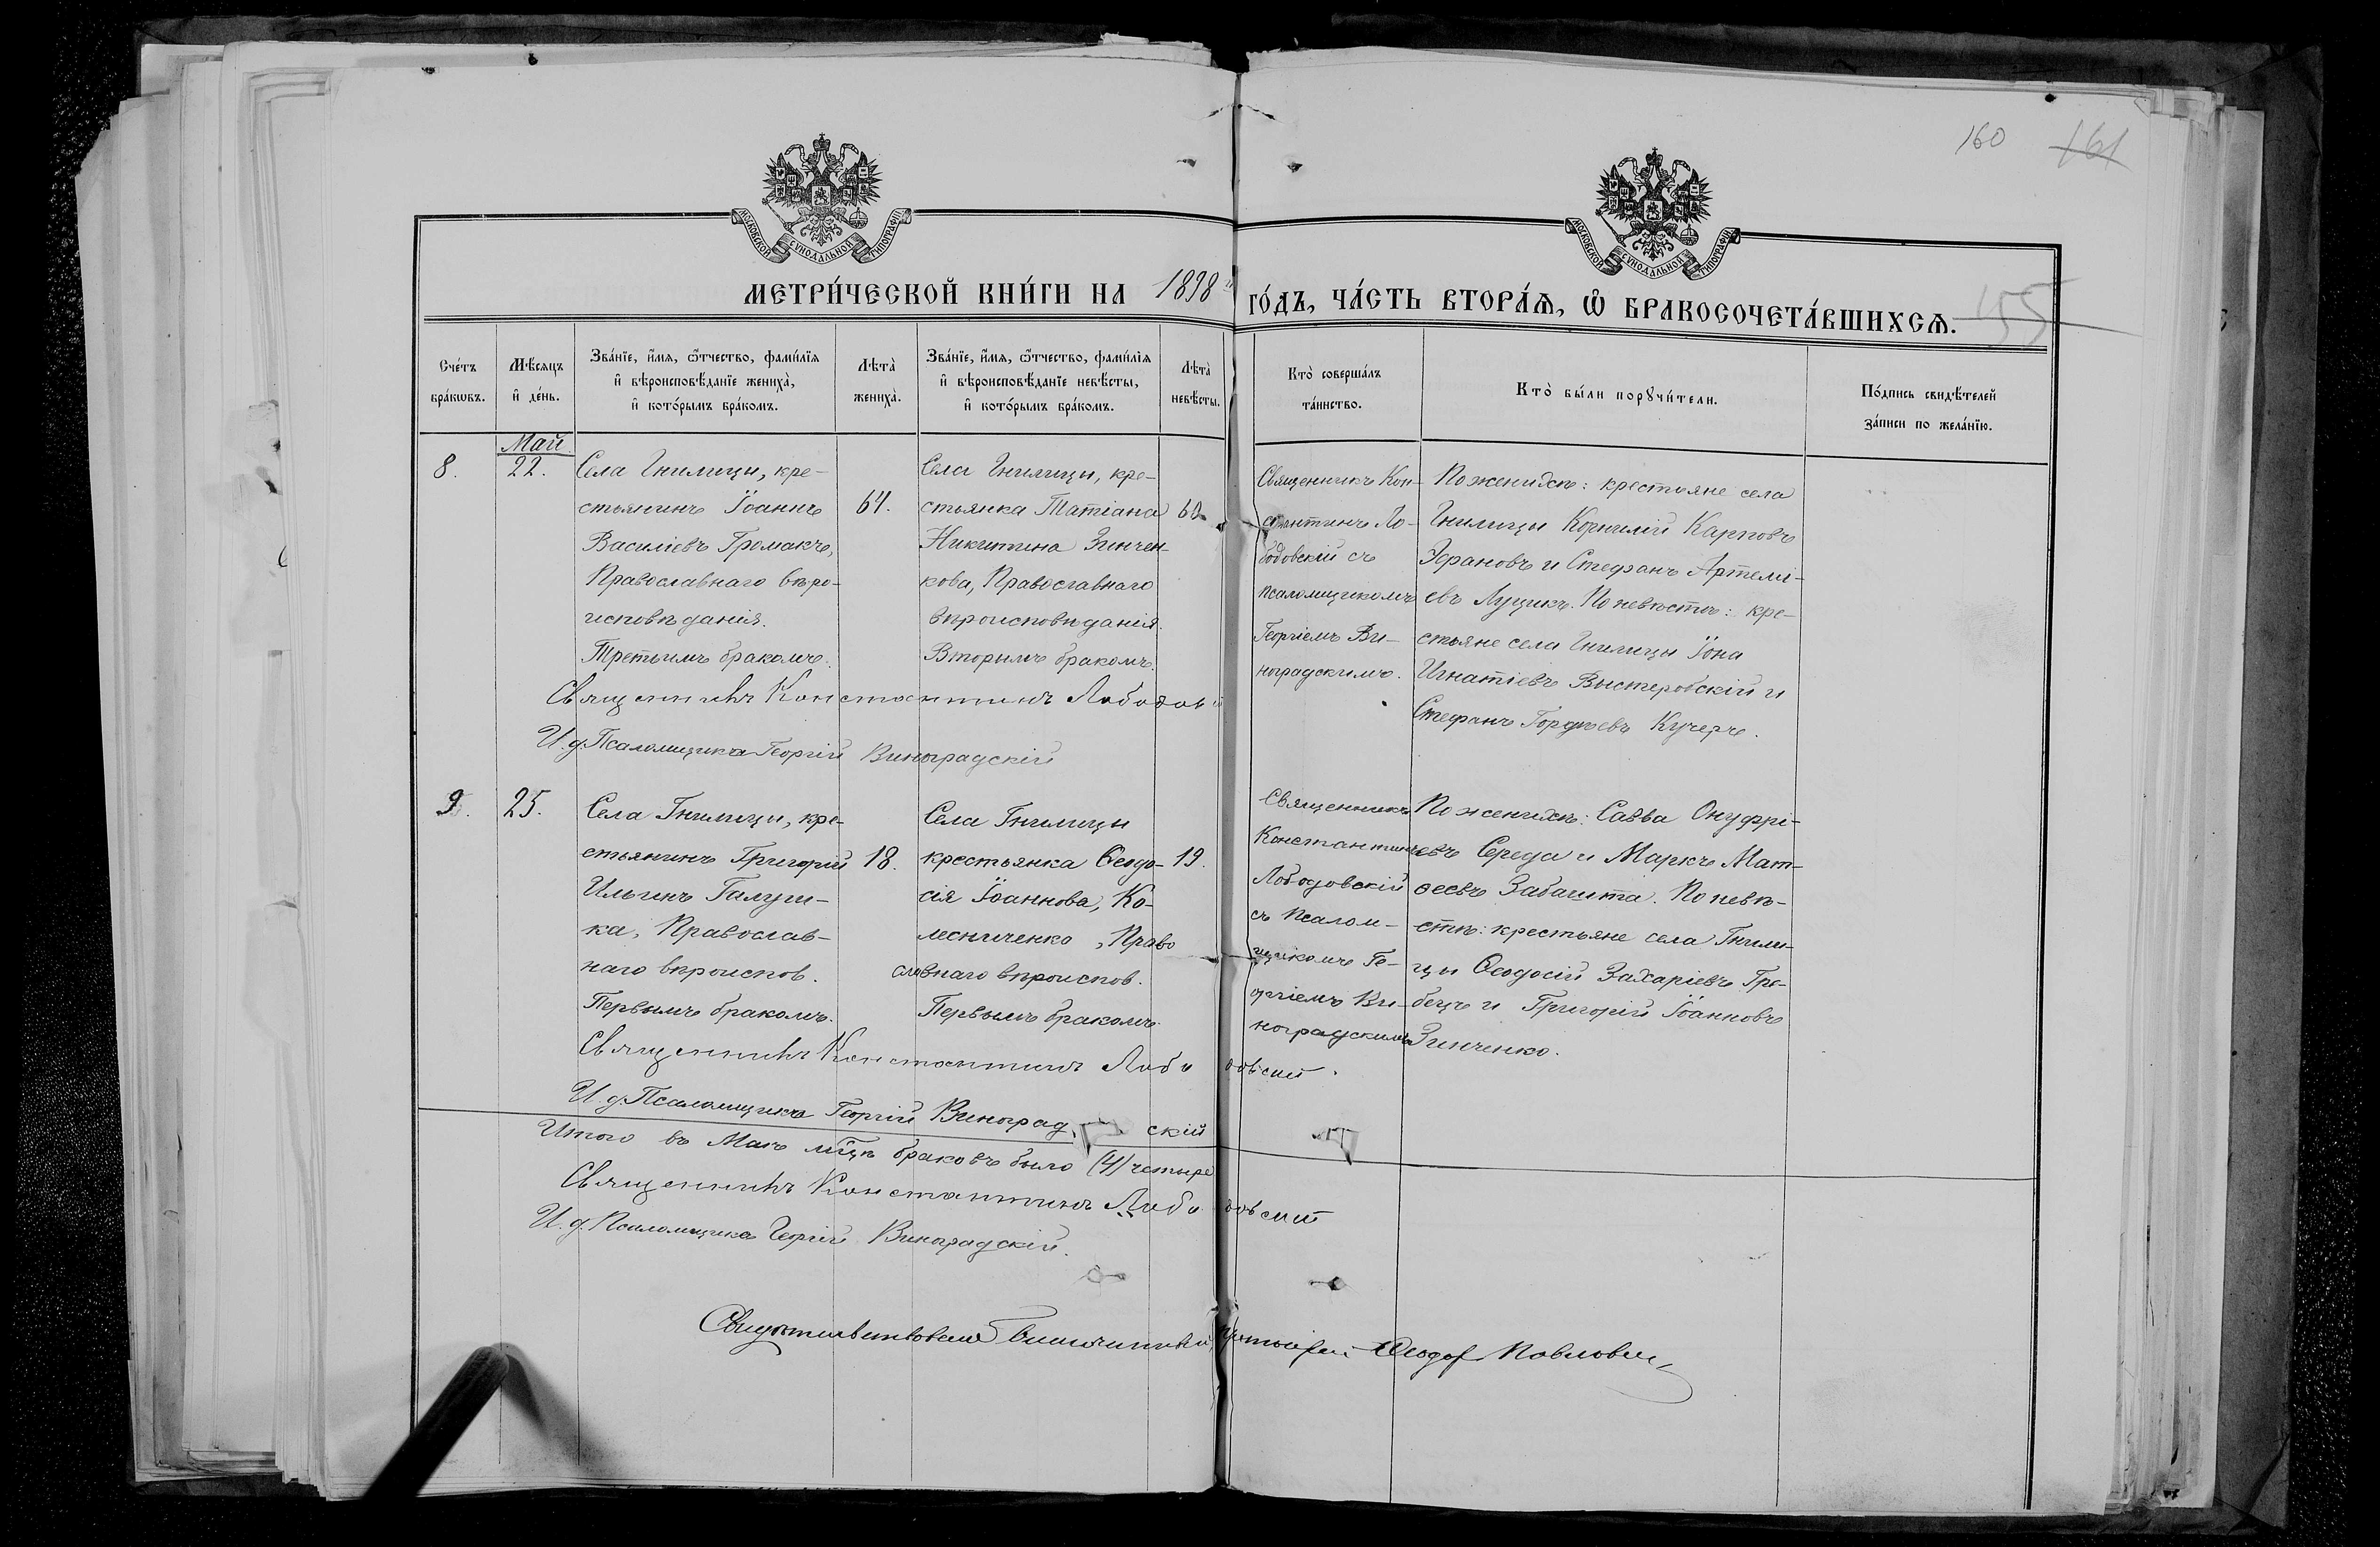 160 161
МОСКОВСКОЙ СѴНОДАЛЬНОЙ ТИПОГРАФІИ
МОСКОВСКОЙ СѴНОДАЛЬНОЙ ТИПОГРАФІИ
МЕТРИ́ЧЕСКОЙ КНИ́ГИ НА 1898 ГО́ДЪ, ЧА́СТЬ ВТОРА́Ѧ, Ѽ БРАКОСОЧЕТА́ВШИХСѦ.
55
Сче́тъ бра́кѡвъ.
Мѣ́сяцъ и҆ де́нь.
Зва́нїе, и҆́мѧ, ѻ҆́тчество, фами́лїѧ
и҆ вѣроисповѣ́данїе жениха̀,
и҆ кото́рымъ бра́комъ.
Лѣта̀ жениха̀.
Зва́нїе, и҆́мѧ, ѻ҆́тчество, фами́лїѧ
и҆ вѣроисповѣ́данїе невѣ́сты,
и҆ кото́рымъ бра́комъ.
Лѣта̀ невѣ́сты.
Кто̀ соверша́лъ
та́инство.
Кто̀ бы́ли порꙋчи́тели.
По́дпись свидѣ́телей
за́писи по жела́нїю.
Май.
8.
22.
Села Гнилицы, кре-
стьянинъ Іоаннъ
Василіевъ Громакъ,
Православнаго вѣро-
исповѣданія.
Третьимъ бракомъ.
61.
Села Гнилицы, кре-
стьянка Татіана
Никитина Зинчен-
кова, Православнаго
вѣроисповѣданія.
Вторымъ бракомъ.
Священникъ Кон-
стантинъ Ло-
бодовскій съ
псаломщикомъ
Георгіемъ Ви-
ноградскимъ.
По женихѣ: крестьяне села
Гнилицы Корнилій Карповъ
и Стефанъ Артемі-
евъ Луцикъ. По невѣстѣ: кре-
стьяне села Гнилицы Іона
Игнатіевъ Выстеробскій и
Стефанъ Гордѣевъ Кучеръ.
Священникъ Константинъ Лободовскій
И. д. Псаломщика Георгій Виноградскій
9.
25.
Села Гнилицы, кре-
стьянинъ Григорій
Ильинъ Галуш-
ка, Православ-
наго вѣроиспов.
Первымъ бракомъ.
18.
Села Гнилицы
крестьянка Ѳеодо-
сія Іоаннова, Ко-
лесниченко, Право
славнаго вѣроиспов.
Первымъ бракомъ.
19.
Священникъ
Константинъ
Лободовскій
съ псалом-
щикомъ Ге-
оргіемъ Ви-
ноградскимъ
По женихѣ: Савва Онуфрі-
евъ Середа и Маркъ Мат-
ѳеевъ Забашта. По невѣ-
стѣ: крестьяне села Гнили-
цы Ѳеодосій Захаріевъ Гре-
бецъ и Григорій Іоанновъ
Зинченко.
Священникъ Константинъ Лободовскій.
И. д. Псаломщика Георгій Виноградскій
Итого въ Маѣ мцѣ браковъ было (4) четыре
Священникъ Константинъ Лободовскій
И. д. Псаломщика Георгій Виноградскій.
Свидѣтельствовалъ Благочинный, Протоіерей Ѳеодоръ Павловичъ